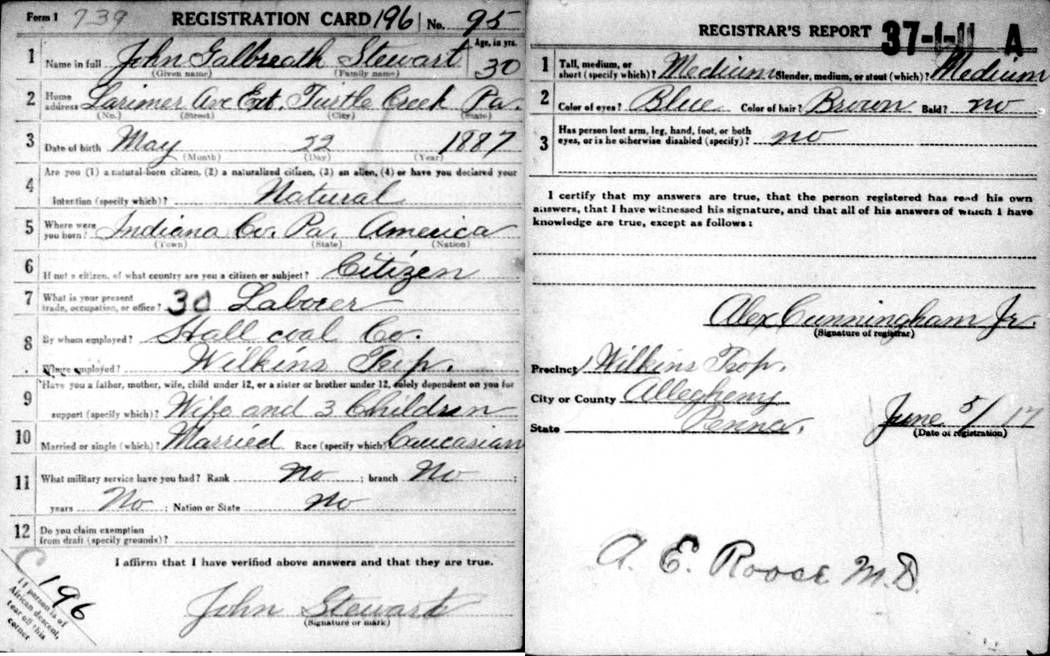 Form 1 739 REGISTRATION CARD 196 No. 95
1 Name in full John Galbreath Stewart Age, in yrs. 30
(Given name) (Family name)
2 Home address Larimer Ave Ext. Turtle Creek Pa.
(No.) (Street) (City) (State)
3 Date of birth May 22 1887
(Month) (Day) (Year)
4 Are you (1) a natural-born citizen, (2) a naturalized citizen, (3) an alien, (4) or have you declared your
intention (specify which)? Natural
5 Where were you born? Indiana Co. Pa. America
(Town) (State) (Nation)
6 If not a citizen, of what country are you a citizen or subject? Citizen
7 What is your present trade, occupation, or office? 30 Laborer
8 By whom employed? Stall coal Co.
Where employed? Wilkins Twp.
9 Have you a father, mother, wife, child under 12, or a sister or brother under 12, solely dependent on you for
support (specify which)? Wife and 3 Children
10 Married or single (which)? Married Race (specify which)? Caucasian
11 What military service have you had? Rank No ; branch No ;
years No ; Nation or State No
12 Do you claim exemption
from draft (specify grounds)?
I affirm that I have verified above answers and that they are true.
C 196
If person is of
African descent,
tear off this
corner
John Stewart
(Signature or mark)
REGISTRAR'S REPORT 37-1-11 A
1 Tall, medium, or
short (specify which)? Medium Slender, medium, or stout (which)? Medium
2 Color of eyes? Blue Color of hair? Brown Bald? no
3 Has person lost arm, leg, hand, foot, or both
eyes, or is he otherwise disabled (specify)? no
I certify that my answers are true, that the person registered has read his own
answers, that I have witnessed his signature, and that all of his answers of which I have
knowledge are true, except as follows:
Alex Cunningham Jr.
(Signature of registrar)
Precinct Wilkins Twp.
City or County Allegheny
State Penna. June 5/17
(Date of registration)
A. E. Roose M.D.